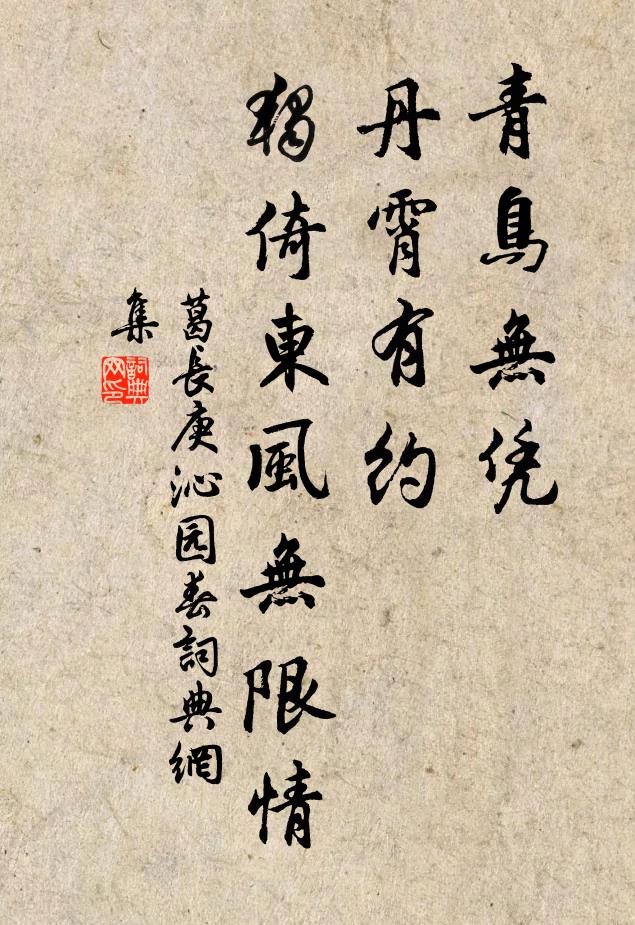 青鳥無凭
丹霄有約
獨倚東風無限情
葛長庚沁园春詞典網
集
詞典
网印